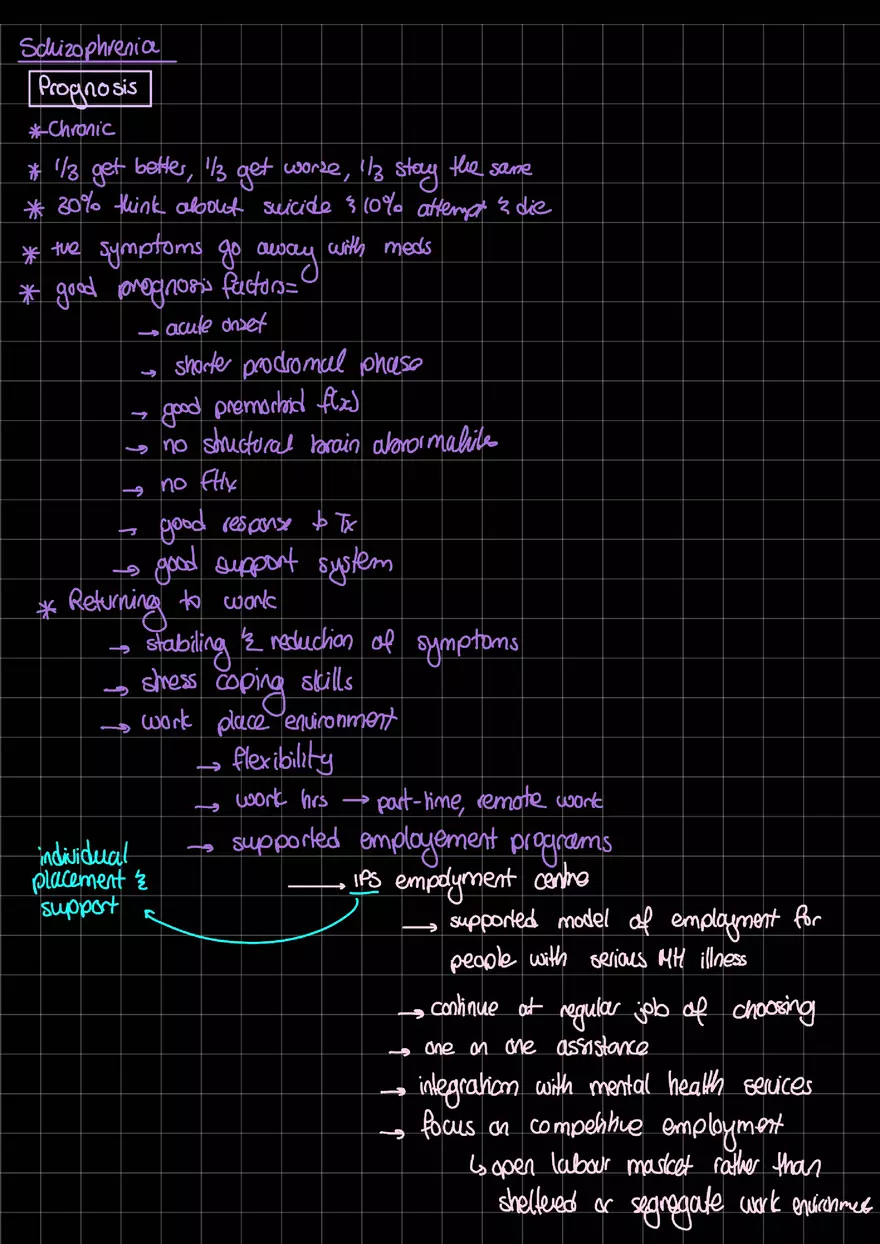 Schizophrenia
Prognosis
* Chronic
* 1/3 get better, 1/3 get worse, 1/3 stay the same
* 30% think about suicide & 10% attempt & die
* +ve symptoms go away with meds
* good prognosis factors=
→ acute onset
→ shorter prodromal phase
→ good premorbid f(x)
→ no structural brain abnormalities
→ no FHx
→ good response to Tx
→ good support system
* Returning to work
→ stabiling & reduction of symptoms
→ stress coping skills
→ work place environment
→ flexibility
→ work hrs → part-time, remote work
→ supported employement programs
individual
placement &
support
→ IPS empolyment centre
→ supported model of employment for
people with serious MH illness
→ continue at regular job of choosing
→ one on one assistance
→ integration with mental health services
→ focus on competitive employment
↳ open labour market rather than
sheltered or segregate work environment